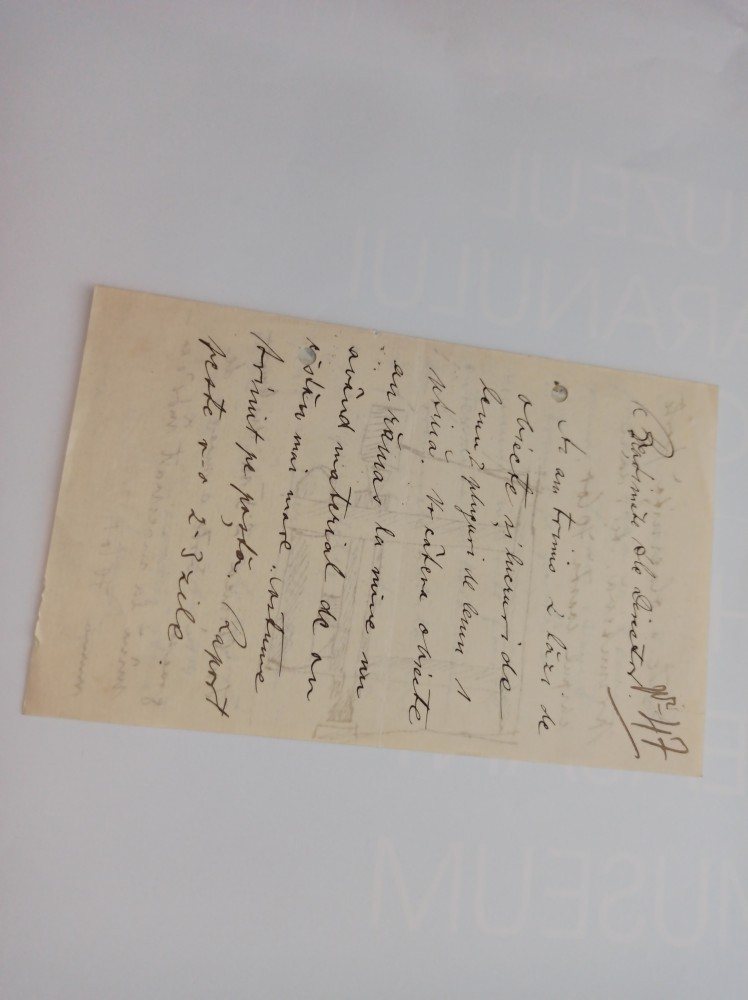 Nr 47
Dle Director!
V am trimis 2 lăzi de
obiecte și lucruri de
lemn, pluguri de lemn 1
stână. Vre câteva obiecte
au rămas la mine nu
având material de an
mai mare. Costume
trimit pe poștă. Raport
peste v-o 2-3 zile.
MUZEUL
ȚĂRANULUI
MUSEUM